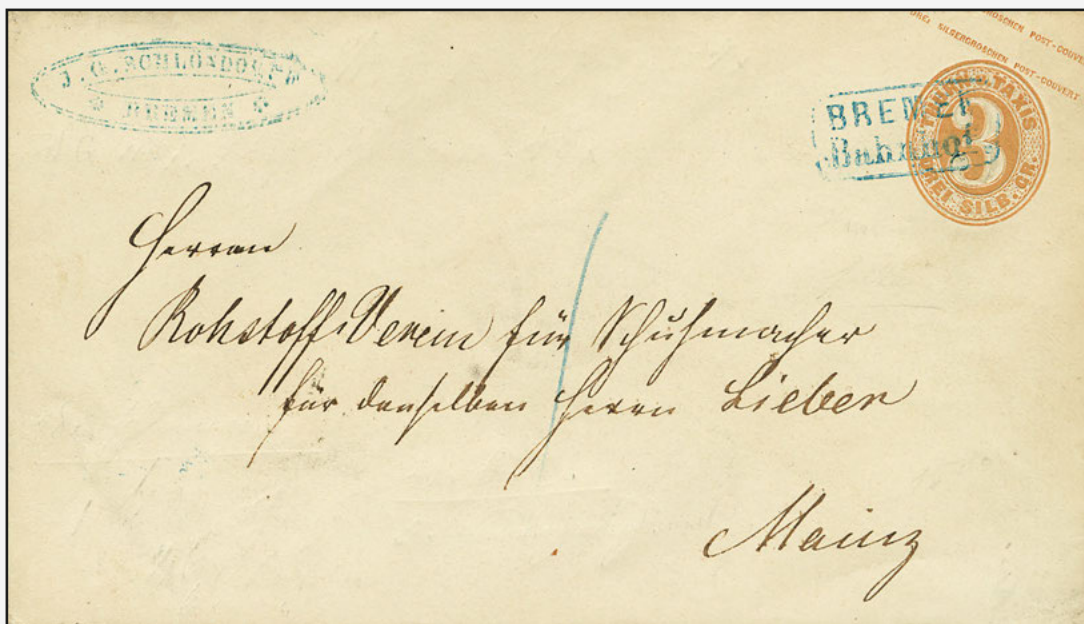 J. G. SCHLÖNDORFF
* BREMEN *
SILBERGROSCHEN POST-COUVERT
DREI SILBERGROSCHEN POST-COUVERT
BREMEN
Bahnhof
THURN u. TAXIS
3
DREI SILB. GR.
Herren
Rohstoff-Verein für Schuhmacher
für denselben Herrn Lieber
Mainz